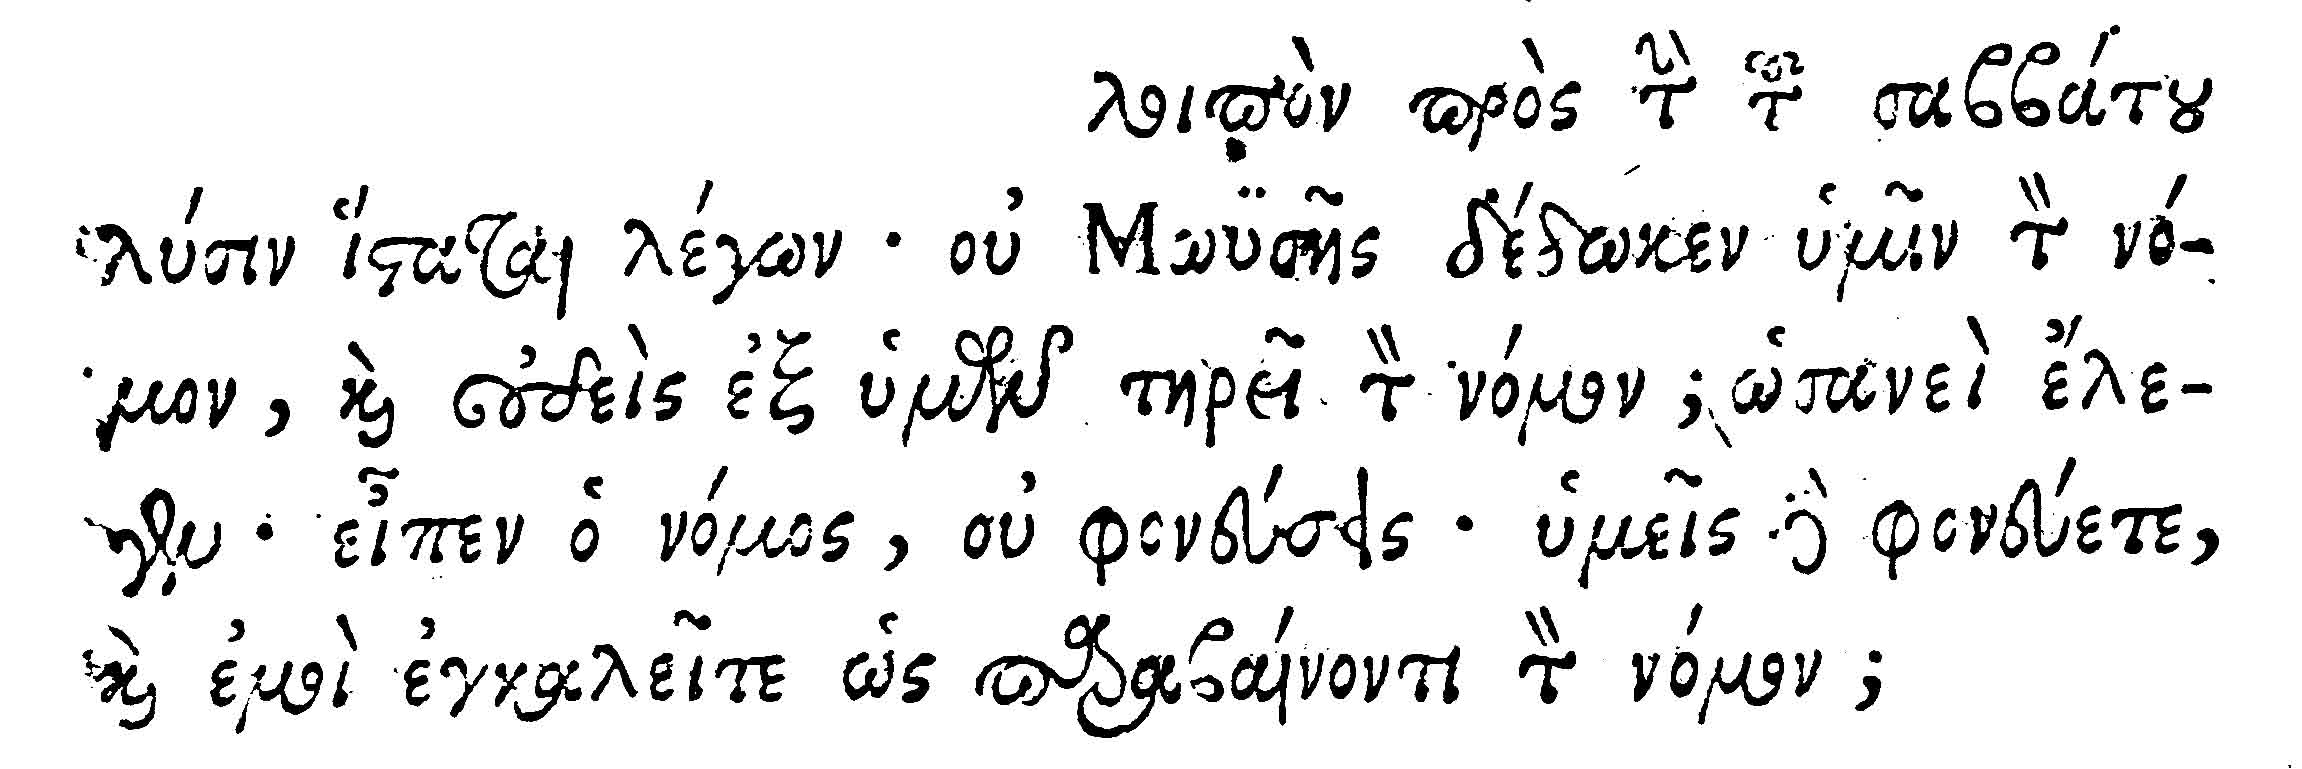 λοιπὸν πρὸς τὴν τοῦ σαββάτου
λύσιν ἵσταται λέγων · οὐ Μωϋσῆς δέδωκεν ὑμῖν τὸν νό-
μον, καὶ οὐδεὶς ἐξ ὑμῶν τηρεῖ τὸν νόμον ; ὡσανεὶ ἔλε-
γεν · εἶπεν ὁ νόμος, οὐ φονεύσεις · ὑμεῖς δὲ φονεύετε,
καὶ ἐμοὶ ἐγκαλεῖτε ὡς παραβαίνοντι τὸν νόμον ;